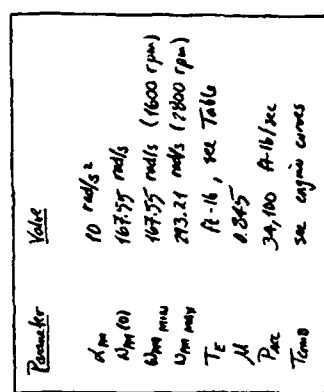 Parameter Value
αm 10 rad/s²
ωm(0) 167.55 rad/s
ωm MIN 167.55 rad/s (1600 rpm)
ωm MAX 293.21 rad/s (2800 rpm)
TE ft-lb, see Table
μ 0.845
PACC 34,100 ft-lb/sec
TCOMB see engine curves